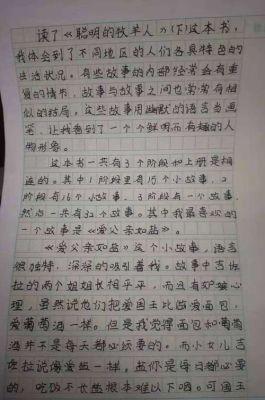 读了《聪明的牧羊人》(下)这本书，
我体会到了不同地区的人们各具特色的
生活状况。有些故事的内部经常会有重
复的情节，故事与故事之间也常常有相
似的结局，这些故事用幽默的语言当画
笔，让我看到了一个个鲜明而有趣的人
物形象。
这本书一共有3个阶段和上册是相
连的。其中1阶段里有15个小故事，2
阶段有16个小故事，3阶段有一个故事，
然后一共有32个故事。其中我最喜欢的
一个故事是《爱父亲如盐》。
《爱父亲如盐》这个小故事，语言
很独特，深深的吸引着我。故事中吉佐
拉的两个姐姐长相平平，而且有妒嫉心
理，虽然说他们把爱国王比做爱面包，
爱葡萄酒一样。但是我觉得面包和葡萄
酒并不是每天都必须事的。而小女儿吉
佐拉说像爱盐一样，盐你是每日都必要
的，吃饭不长盐根本难以下咽。可国王